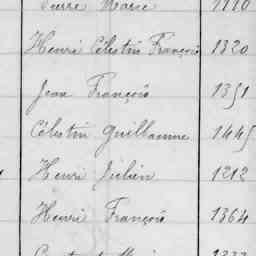 Pierre Marie 1110
Henri Célestin François 1320
Jean François 1351
Célestin Guillaume 1445
Henri Julien 1212
Henri François 1364